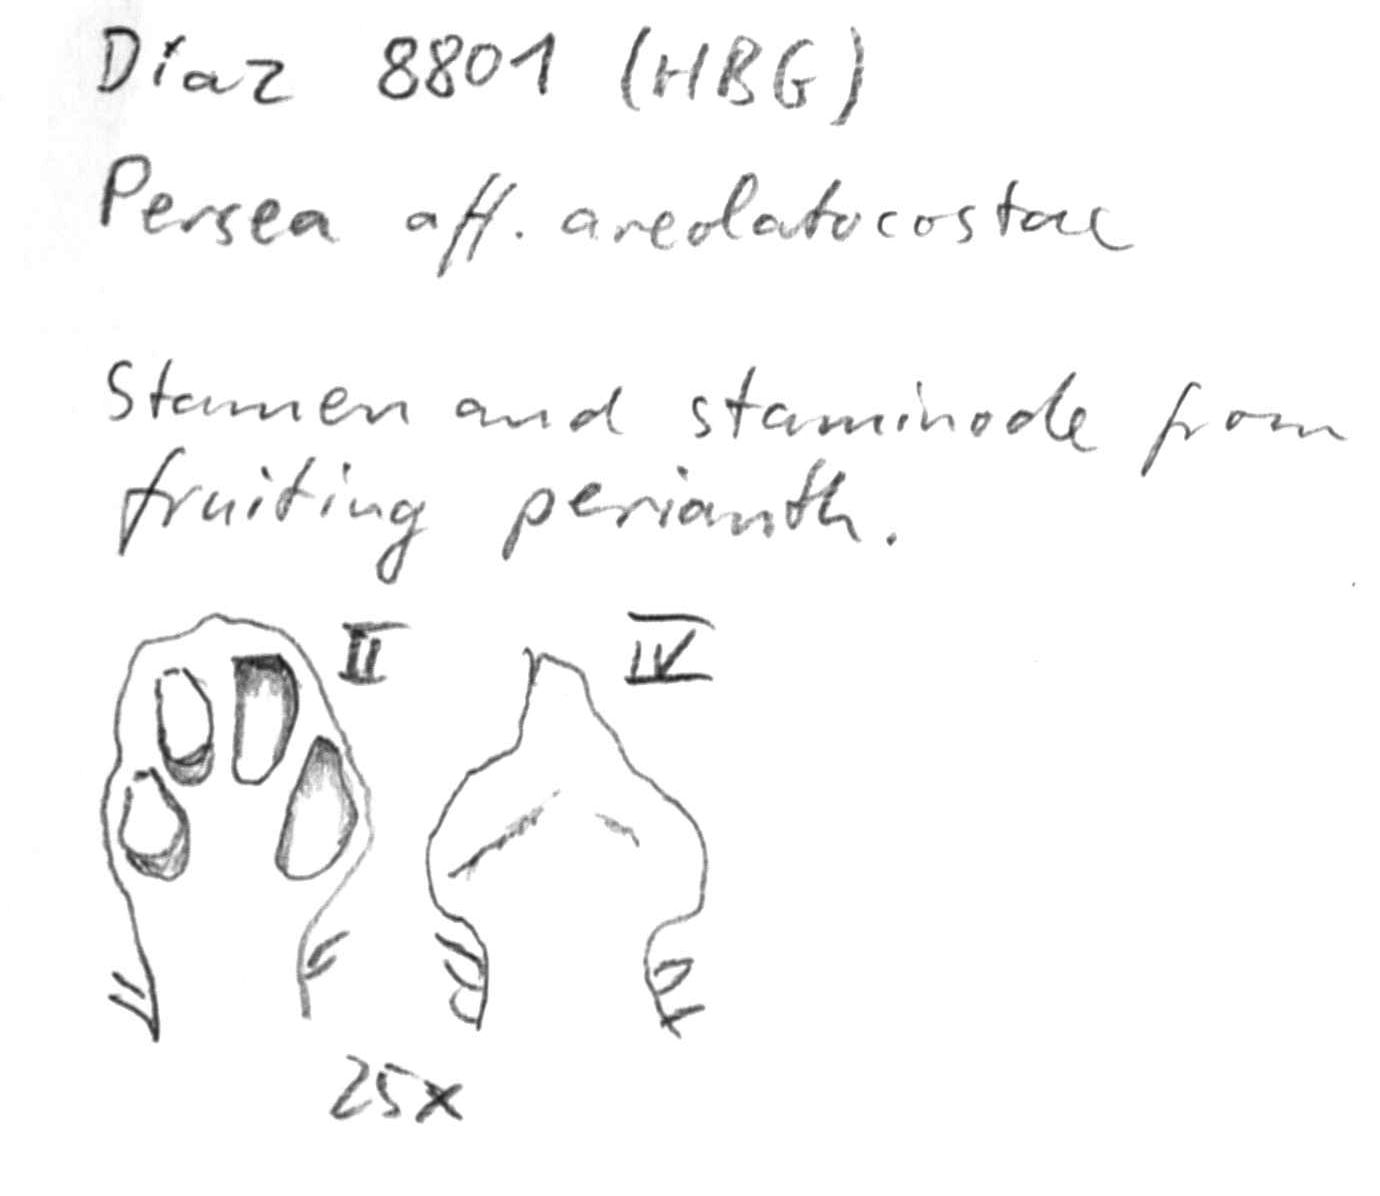 Díaz 8801 (HBG)
Persea aff. areolatocostae
Stamen and staminode from
fruiting perianth.
II IV
25x